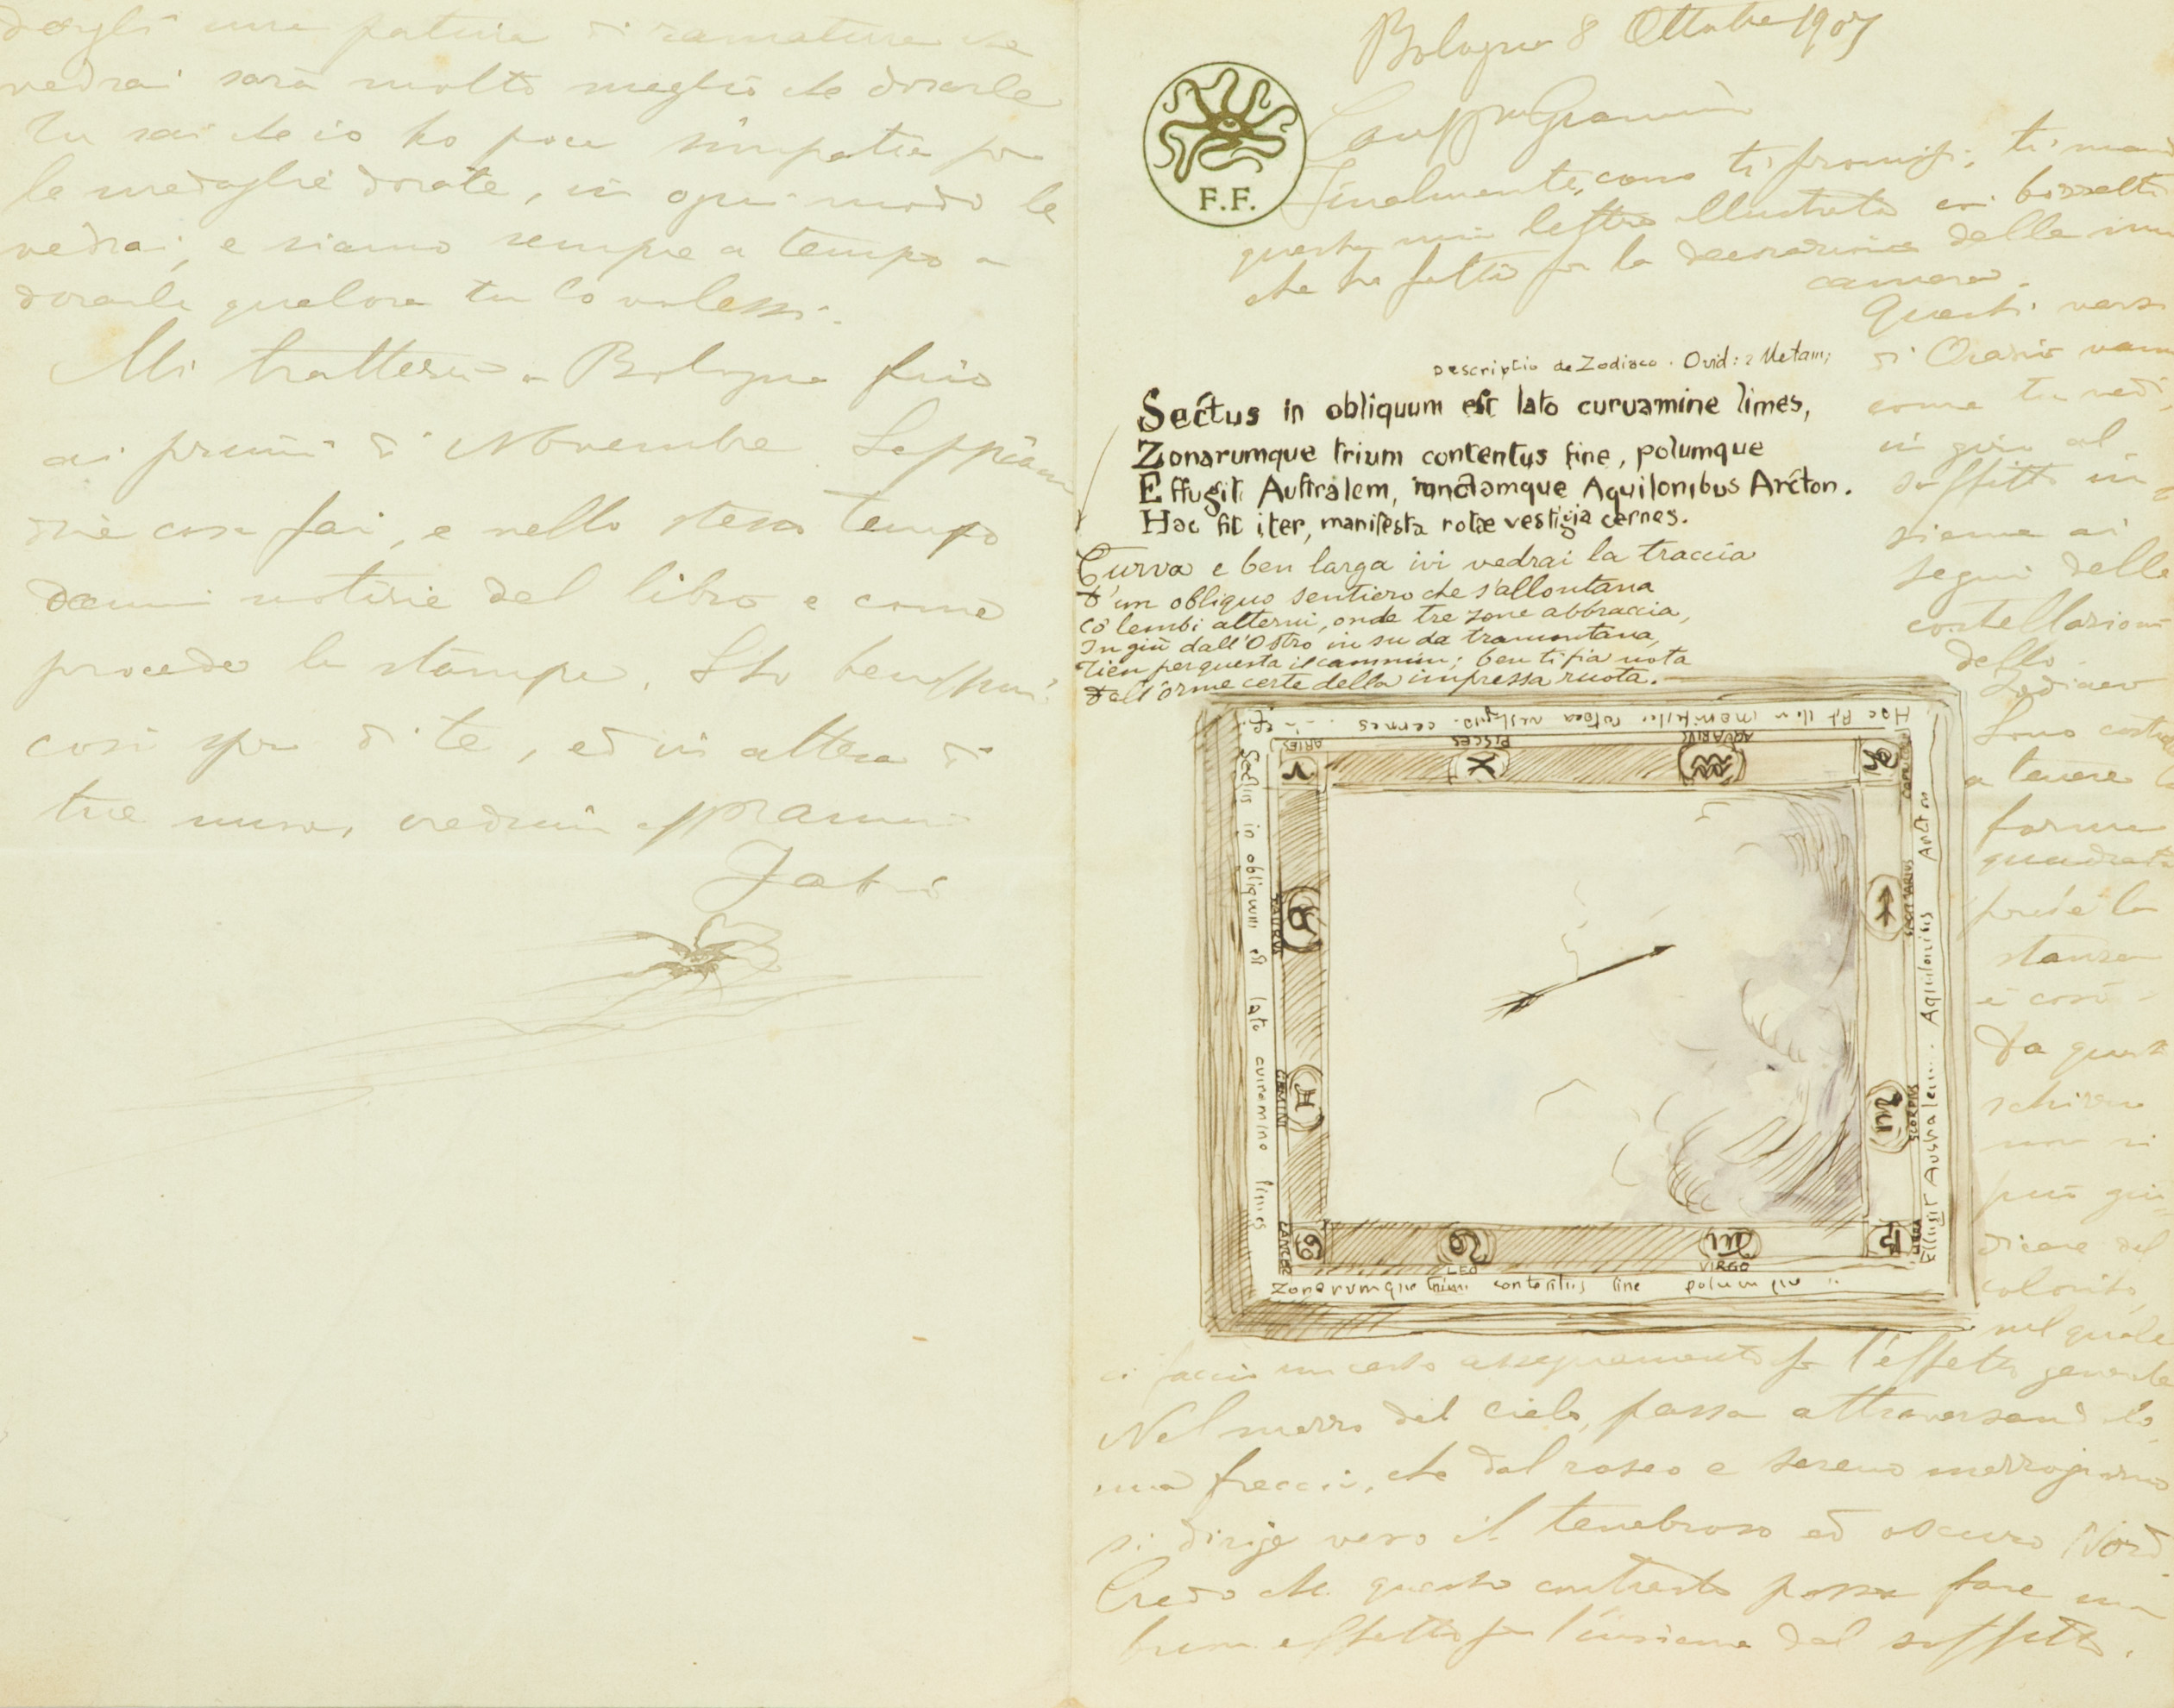 Bologna 8 Ottobre 1907
F.F.
Finalmente, come ti promisi, ti mando
questa mia lettera illustrata coi bozzetti
che ho fatto per la decorazione della mia
camera.
Descriptio de Zodiaco. Ovid: 2 Metam;
Sectus in obliquum est lato curvamine limes,
Zonarumque trium contentus fine, polumque
Effugit Australem, iunctamque Aquilonibus Arcton.
Hac sit iter, manifesta rotæ vestigia cernes.
Curva e ben larga ivi vedrai la traccia
D'un obliquo sentiero che s'allontana
Co' lembi alterni, onde tre zone abbraccia,
In giù dall'Ostro in su da tramontana,
Tien per questa il cammin; ben ti fia nota
Dall'orme certe della impressa ruota.
Questi versi
di Ovidio vanno
come tu vedi,
in giro al
soffitto in-
sieme ai
segni delle
costellazioni
dello
Zodiaco
Sono costretto
a tenere la
forma
quadrata
perché la
stanza
è così.
Da questo
schizzo
non si
può giu-
dicare del
colorito,
nel quale
Hac sit iter manifesta rotaea vestigia cernes
ARIES
PISCES
AQUARIUS
Sectus in obliquum est lato curvamine limes
TAURUS
GEMINI
CANCER
SAGITTARIUS
SCORPIUS
LIBRA
Effugit Australem... Aquilonibus Arcton
LEO
VIRGO
Zonarumque trium contentus fine polumque
ci faccio un certo assegnamento per l'effetto generale
Nel mezzo del cielo, passa attraversandolo,
una freccia, che dal roseo e sereno mezzogiorno
si dirige verso il tenebroso ed oscuro Nord.
Credo che questo contrasto possa fare un
buon effetto per l'insieme del soffitto.
dargli una patina di ramatura che
vedrai sarà molto meglio che dorarle
Tu sai che io ho poca simpatia per
le medaglie dorate, in ogni modo le
vedrai, e siamo sempre a tempo a
dorarle qualora tu lo volessi.
Mi tratterrò a Bologna fino
ai primi di Novembre. Sappiami
dire cosa fai, e nello stesso tempo
dammi notizie del libro e come
procede la stampa. Sto benissimo
così spero di te, ed in attesa di
tue nuove, credimi affmo
Fabio